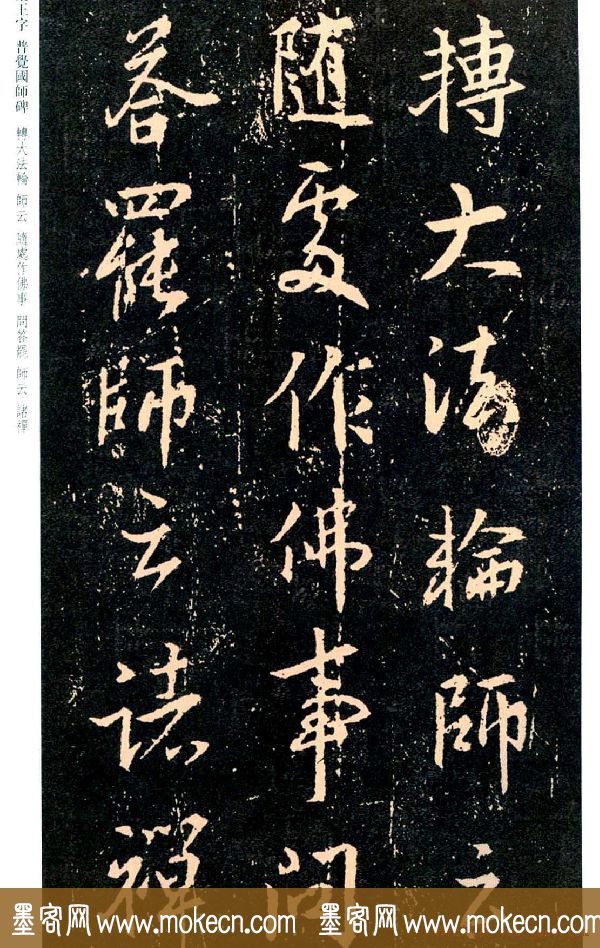 轉大法輪師云
随處作佛事問
答罷師云諸禪
王字 普覺國師碑 轉大法輪 師云 隨處作佛事 問答罷 師云 諸禪
墨客网 www.mokecn.com 墨客网 www.mokecn.com 墨客网 www.mokecn.com